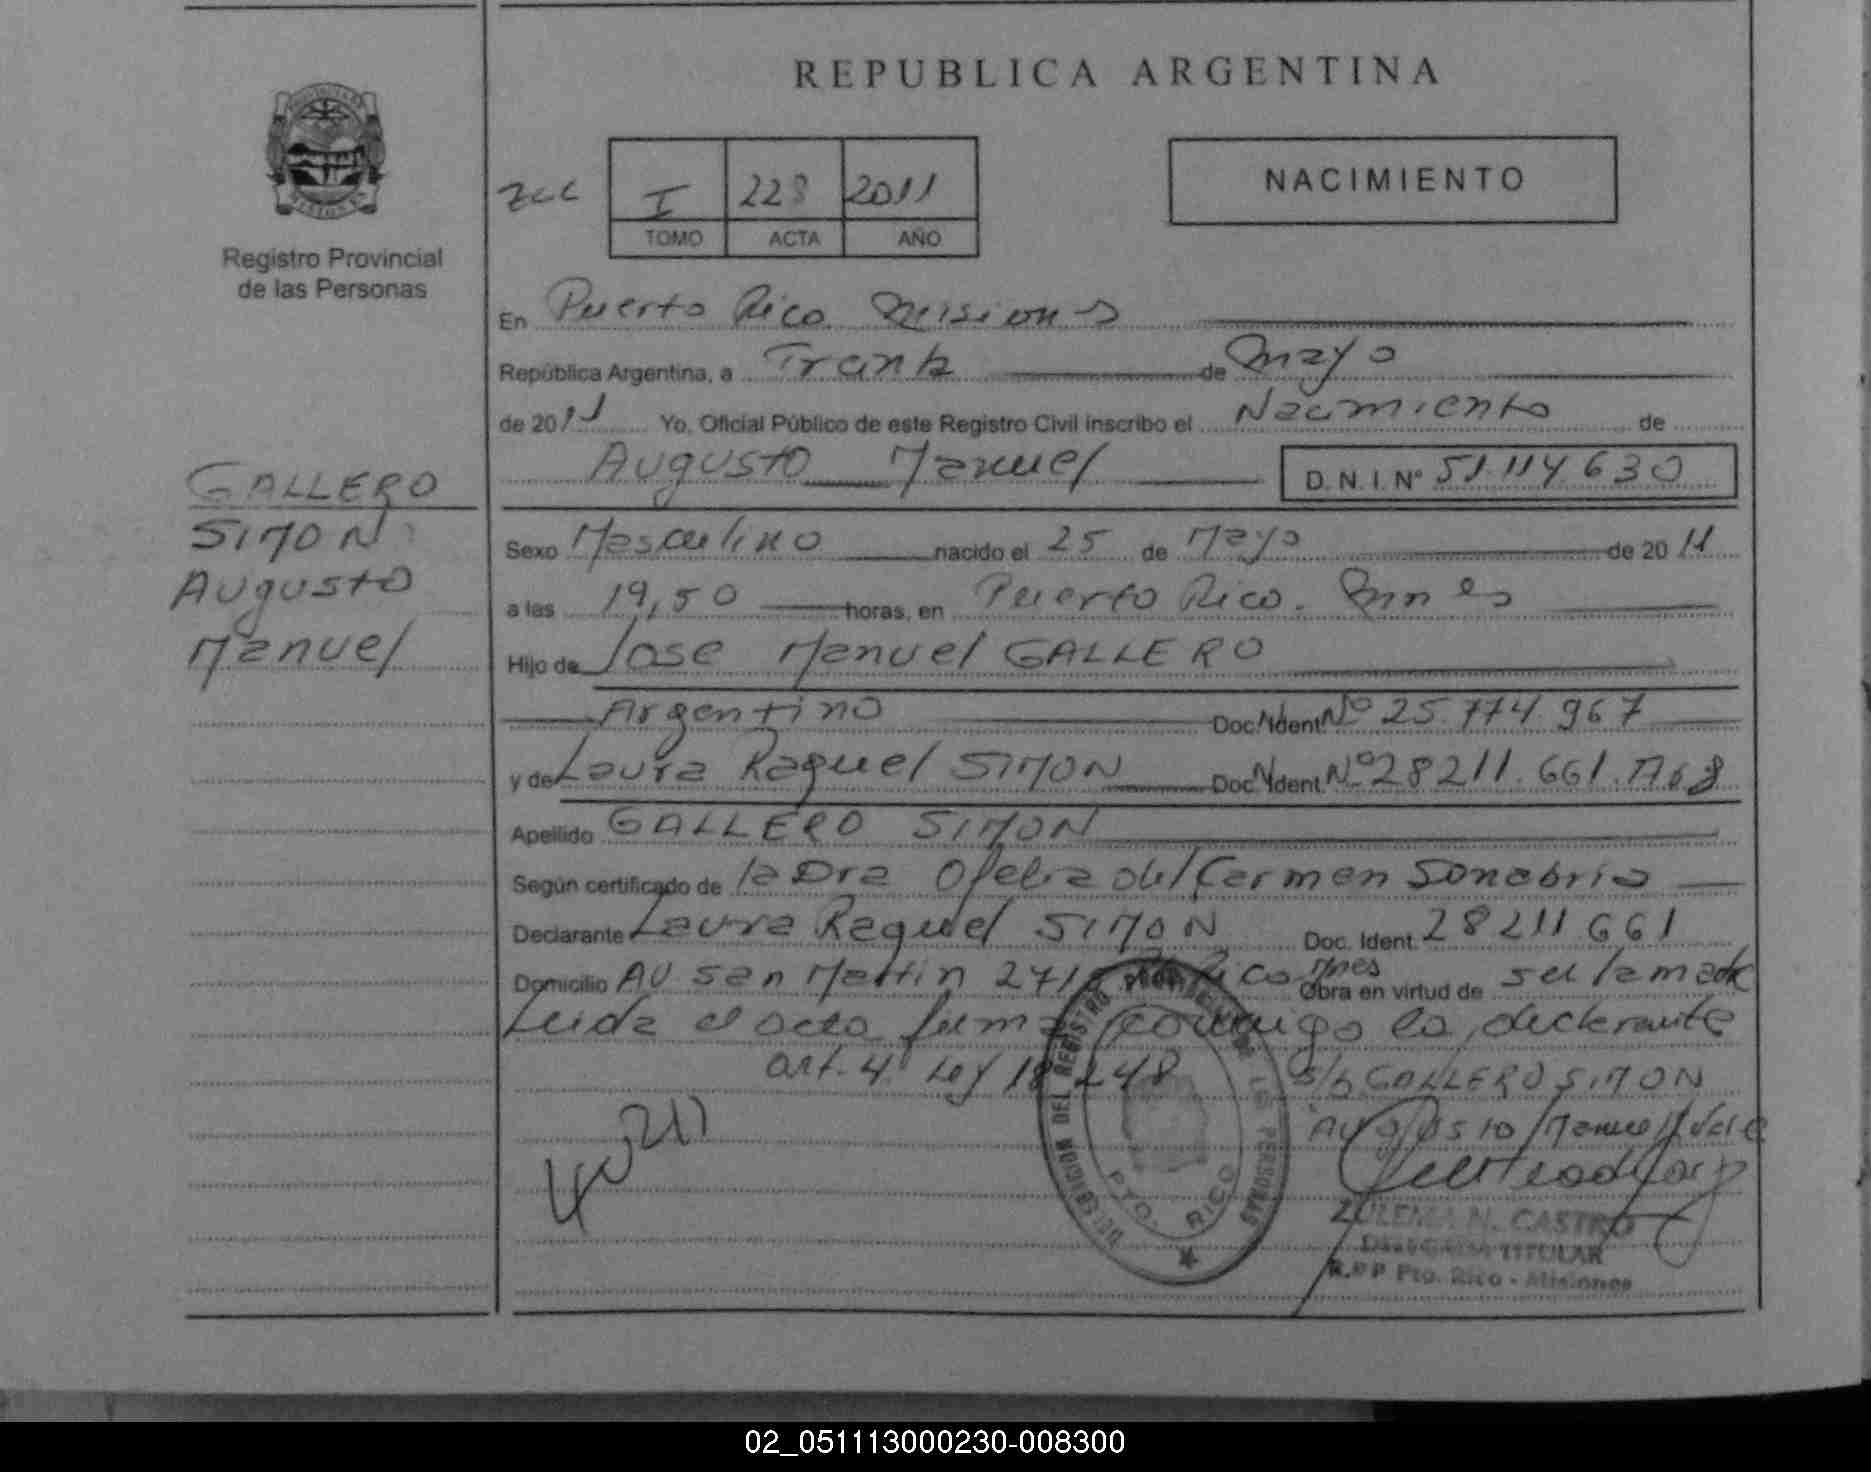 REPUBLICA ARGENTINA
Registro Provincial
de las Personas
I 228 2011
TOMO ACTA AÑO
NACIMIENTO
En Puerto Rico Misiones
República Argentina, a Treinta de Mayo
de 2011 Yo, Oficial Público de este Registro Civil inscribo el Nacimiento de
Augusto Manuel D.N.I. Nº 51.114.630
GALLERO
SIMON
Augusto
Manuel
Sexo Masculino nacido el 25 de Mayo de 2011
a las 19,50 horas, en Puerto Rico. Mnes
Hijo de Jose Manuel GALLERO
Argentino Doc. Ident. Nº 25.774.967
y de Laura Raquel SIMON Doc. Ident. Nº 28211.661.
Apellido GALLERO SIMON
Según certificado de la Dra Ofelia del Carmen Sonabria
Declarante Laura Raquel SIMON Doc. Ident. 28211661
Domicilio AV San Martin Rico Mnes Obra en virtud de ser la madre
Leida el acta firma conmigo la declarante
art. 4º Ley 18248 S/b GALLERO SIMON
Augusto Manuel Vale
DELEGACION DEL REGISTRO PROVINCIAL DE LAS PERSONAS
PTO. RICO
ZULEMA N. CASTRO
DELEGADA TITULAR
R.P.P Pto. Rico - Misiones
02_051113000230-008300